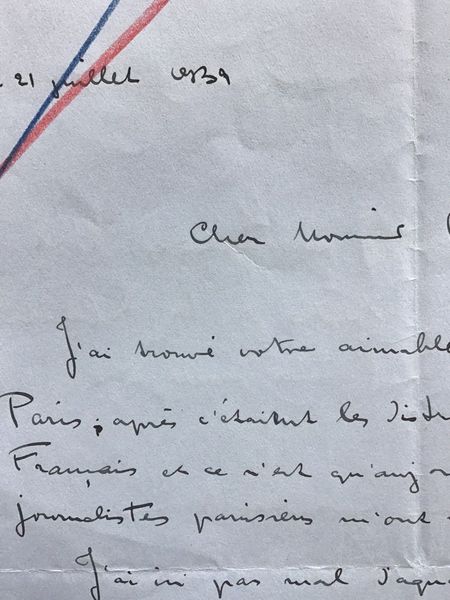 21 juillet 1939
Cher Monsieur
J'ai trouvé votre aimable
Paris ; après c'étaient les
Français et ce n'est qu'auj
journalistes parisiens m'ont
J'ai ici pas mal d'aqua